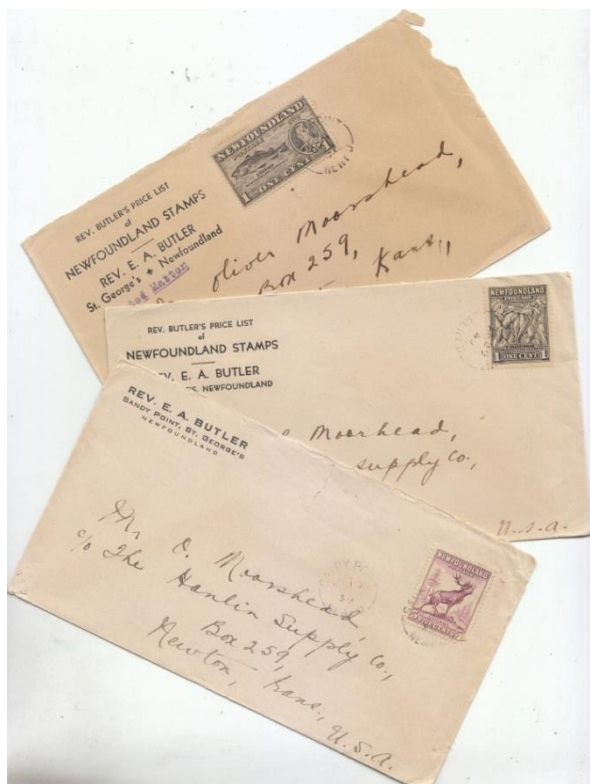 NEWFOUNDLAND
POSTAGE
1 ONE CENT 1
REV. BUTLER'S PRICE LIST
of
NEWFOUNDLAND STAMPS
REV. E. A. BUTLER
St. George's Newfoundland
Matter
Oliver Moorshead,
Box 259,
Kans.,
NEWFOUNDLAND
1 ONE CENT 1
REV. BUTLER'S PRICE LIST
of
NEWFOUNDLAND STAMPS
E. A. BUTLER
NEWFOUNDLAND
Moorhead,
supply Co.,
U.S.A.
REV. E. A. BUTLER
SANDY POINT, ST. GEORGE'S
NEWFOUNDLAND
NEWFOUNDLAND
Mr. O. Moorshead,
c/o The Hanlin Supply Co.,
Box 259,
Newton, Kans.,
U.S.A.